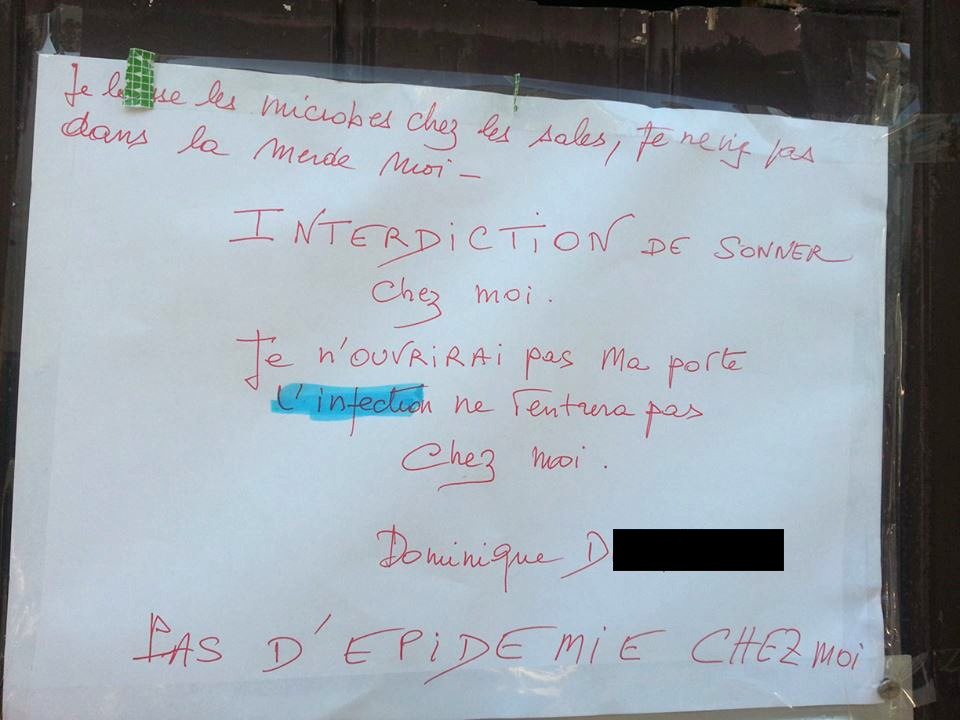 Je laisse les microbes chez les sales, je ne vis pas
dans la merde moi -
INTERDICTION DE SONNER
Chez moi.
Je n'OUVRIRAI pas ma porte
L'infection ne rentrera pas
Chez moi.
Dominique D
PAS D'EPIDEMIE CHEZ MOI